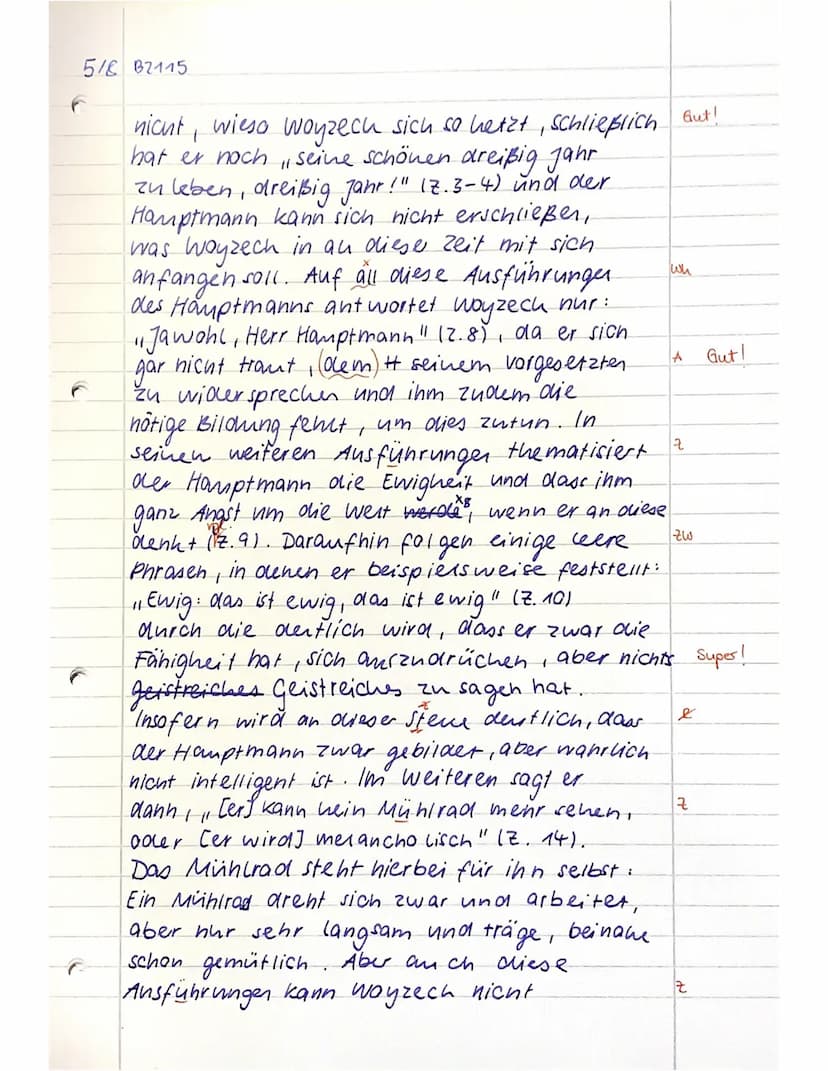 5/8 BZ115
nicht, wieso Woyzeck sich so hetzt, schließlich Gut!
hat er noch „seine schönen dreißig Jahr
zu leben, dreißig Jahr!" (Z.3-4) und der
Hauptmann kann sich nicht erschließen,
was Woyzeck in all diese Zeit mit sich
anfangen soll. Auf all diese Ausführungen Wh
des Hauptmanns antwortet Woyzeck nur:
„Jawohl, Herr Hauptmann" (Z.8), da er sich
gar nicht traut, (dem) seinem Vorgesetzten A Gut!
zu widersprechen und ihm zudem die
nötige Bildung fehlt, um dies zutun. In
seinen weiteren Ausführungen thematisiert Z
der Hauptmann die Ewigkeit und dass ihm
ganz Angst um die Welt werde, wenn er an diese
denkt (Z.9). Daraufhin folgen einige leere ZW
Phrasen, in denen er beispielsweise feststellt:
„Ewig: das ist ewig, das ist ewig" (Z.10)
durch die deutlich wird, dass er zwar die
Fähigkeit hat, sich auszudrücken, aber nichts Super!
geistreiches Geistreiches zu sagen hat.
Insofern wird an dieser Stelle deutlich, dass
der Hauptmann zwar gebildet, aber wahrlich
nicht intelligent ist. Im Weiteren sagt er
dann, „[er] kann kein Mühlrad mehr sehen, Z
oder [er wird] melancholisch" (Z. 14).
Das Mühlrad steht hierbei für ihn selbst:
Ein Mühlrad dreht sich zwar und arbeitet,
aber nur sehr langsam und träge, beinahe
schon gemütlich. Aber auch diese
Ausführungen kann Woyzeck nicht Z